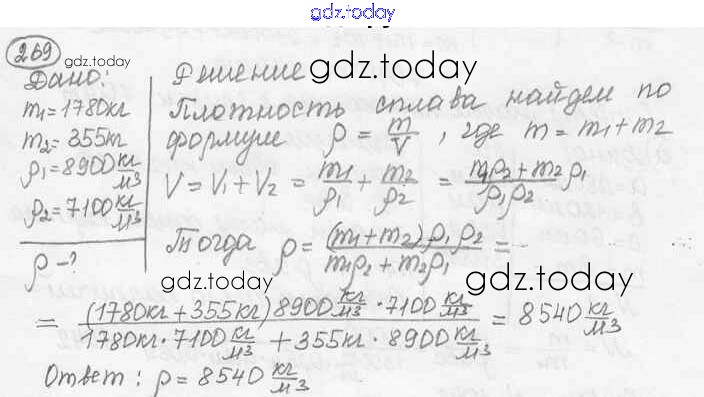 gdz.today
269
gdz.today
Дано:
m₁=1780кг
m₂=355т
ρ₁=8900 кг/м3
ρ₂=7100 кг/м3
ρ-?
Решение gdz.today
Плотность сплава найдем по
формуле ρ = m/V , где m = m₁+m₂
V = V₁+V₂ = m₁/ρ₁ + m₂/ρ₂ = m₁ρ₂+m₂ρ₁/ρ₁ρ₂
Тогда ρ = (m₁+m₂)ρ₁ρ₂/m₁ρ₂+m₂ρ₁ =
gdz.today gdz.today
= (1780кг+355кг)8900 кг/м3 · 7100 кг/м3 / 1780кг·7100 кг/м3 + 355кг·8900 кг/м3 = 8540 кг/м3
Ответ: ρ = 8540 кг/м3